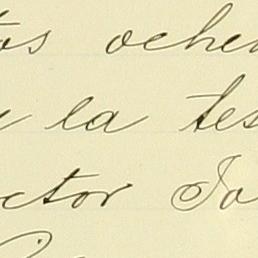 tos ochen
y la tes
ctor Jo